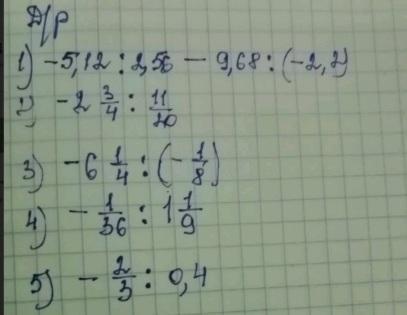 Д/р
1) -5,12 : 2,56 - 9,68 : (-2,2)
2) -2 3/4 : 11/20
3) -6 1/4 : (-1/8)
4) -1/36 : 1 1/9
5) -2/3 : 0,4